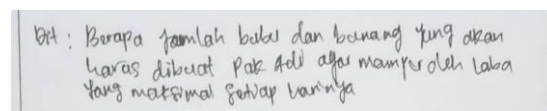 Dit : Berapa jamlah babu dan banang yung akan
haras dibuat Pak Adi agar mamper oleh Laba
Yang maksimal setiap harinya